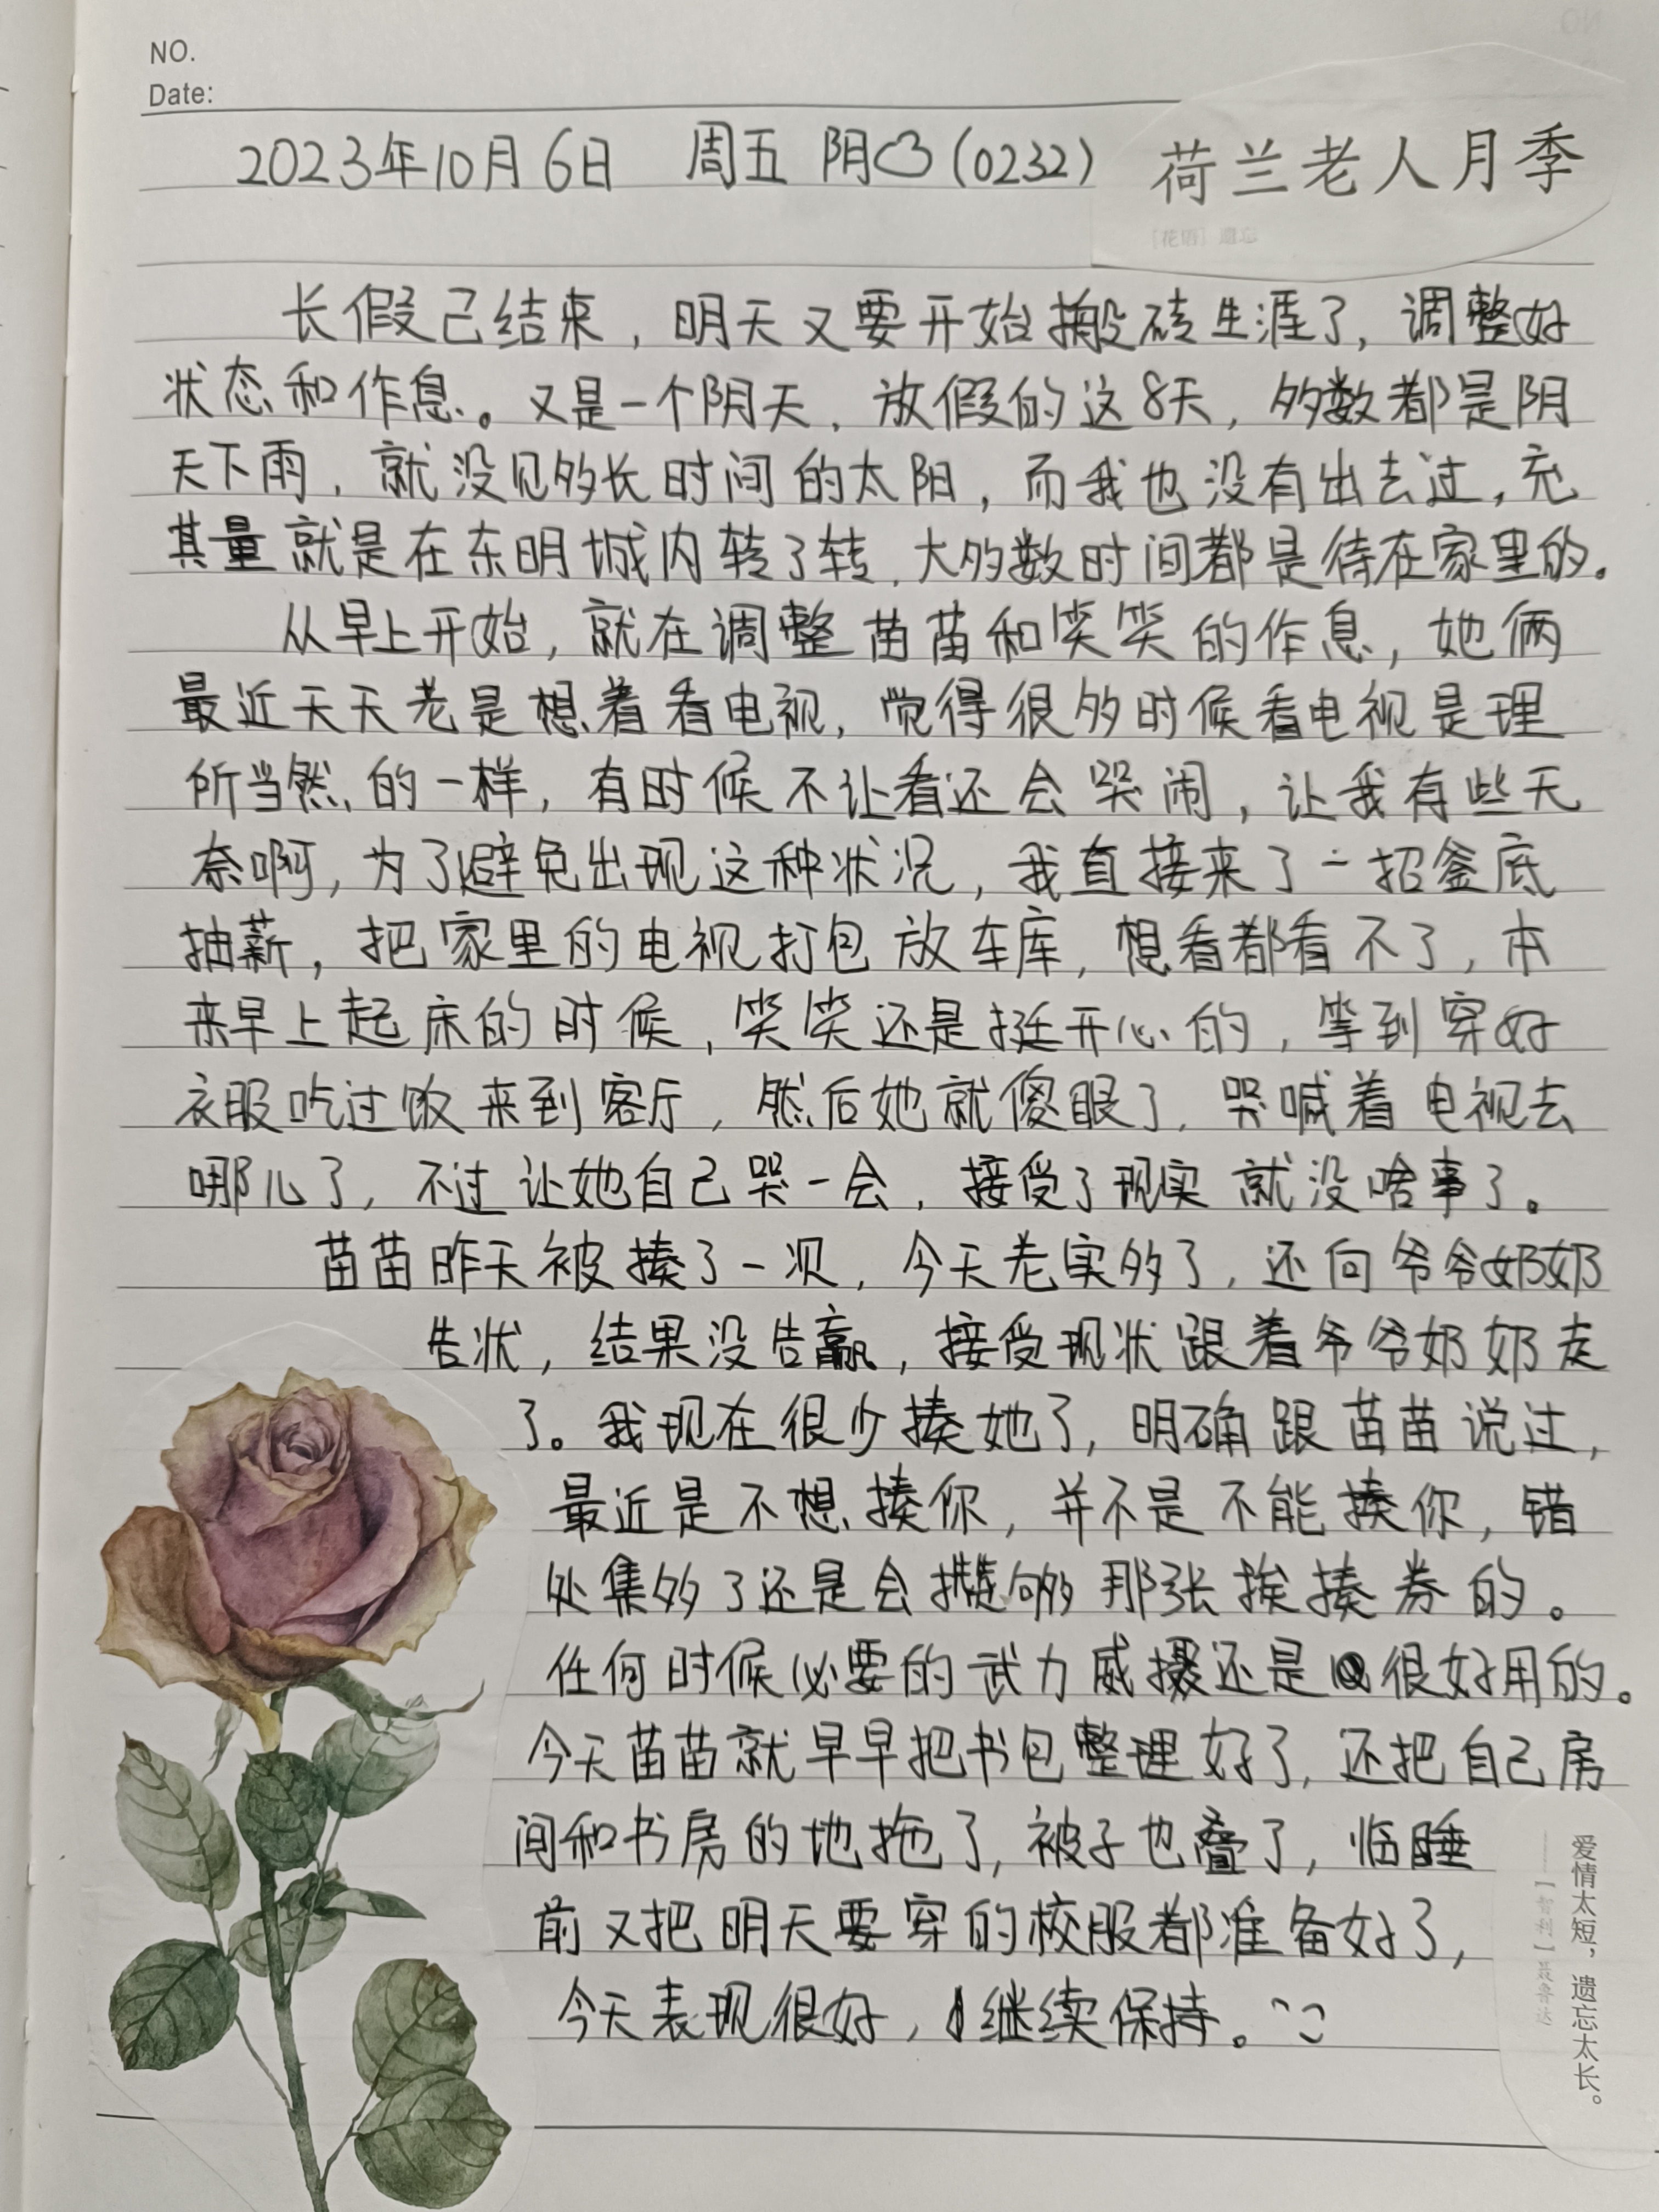 NO.
Date:
2023年10月6日 周五 阴 (0232)
荷兰老人月季
[花语] 遗忘
长假已结束，明天又要开始搬砖生涯了，调整好
状态和作息。又是一个阴天，放假的这8天，多数都是阴
天下雨，就没见多长时间的太阳，而我也没有出去过，充
其量就是在东明城内转了转，大多数时间都是待在家里的。
从早上开始，就在调整苗苗和笑笑的作息，她俩
最近天天老是想着看电视，觉得很多时候看电视是理
所当然的一样，有时候不让看还会哭闹，让我有些无
奈啊，为了避免出现这种状况，我直接来了一招釜底
抽薪，把家里的电视打包放车库，想看都看不了，本
来早上起床的时候，笑笑还是挺开心的，等到穿好
衣服吃过饭来到客厅，然后她就傻眼了，哭喊着电视去
哪儿了，不过让她自己哭一会，接受了现实就没啥事了。
苗苗昨天被揍了一次，今天老实多了，还向爷爷奶奶
告状，结果没告赢，接受现状跟着爷爷奶奶走
了。我现在很少揍她了，明确跟苗苗说过，
最近是不想揍你，并不是不能揍你，错
处集多了还是会攒够那张挨揍券的。
任何时候必要的武力威摄还是很好用的。
今天苗苗就早早把书包整理好了，还把自己房
间和书房的地拖了，被子也叠了，临睡
前又把明天要穿的校服都准备好了，
今天表现很好，继续保持。
爱情太短，遗忘太长。
——[智利]聂鲁达